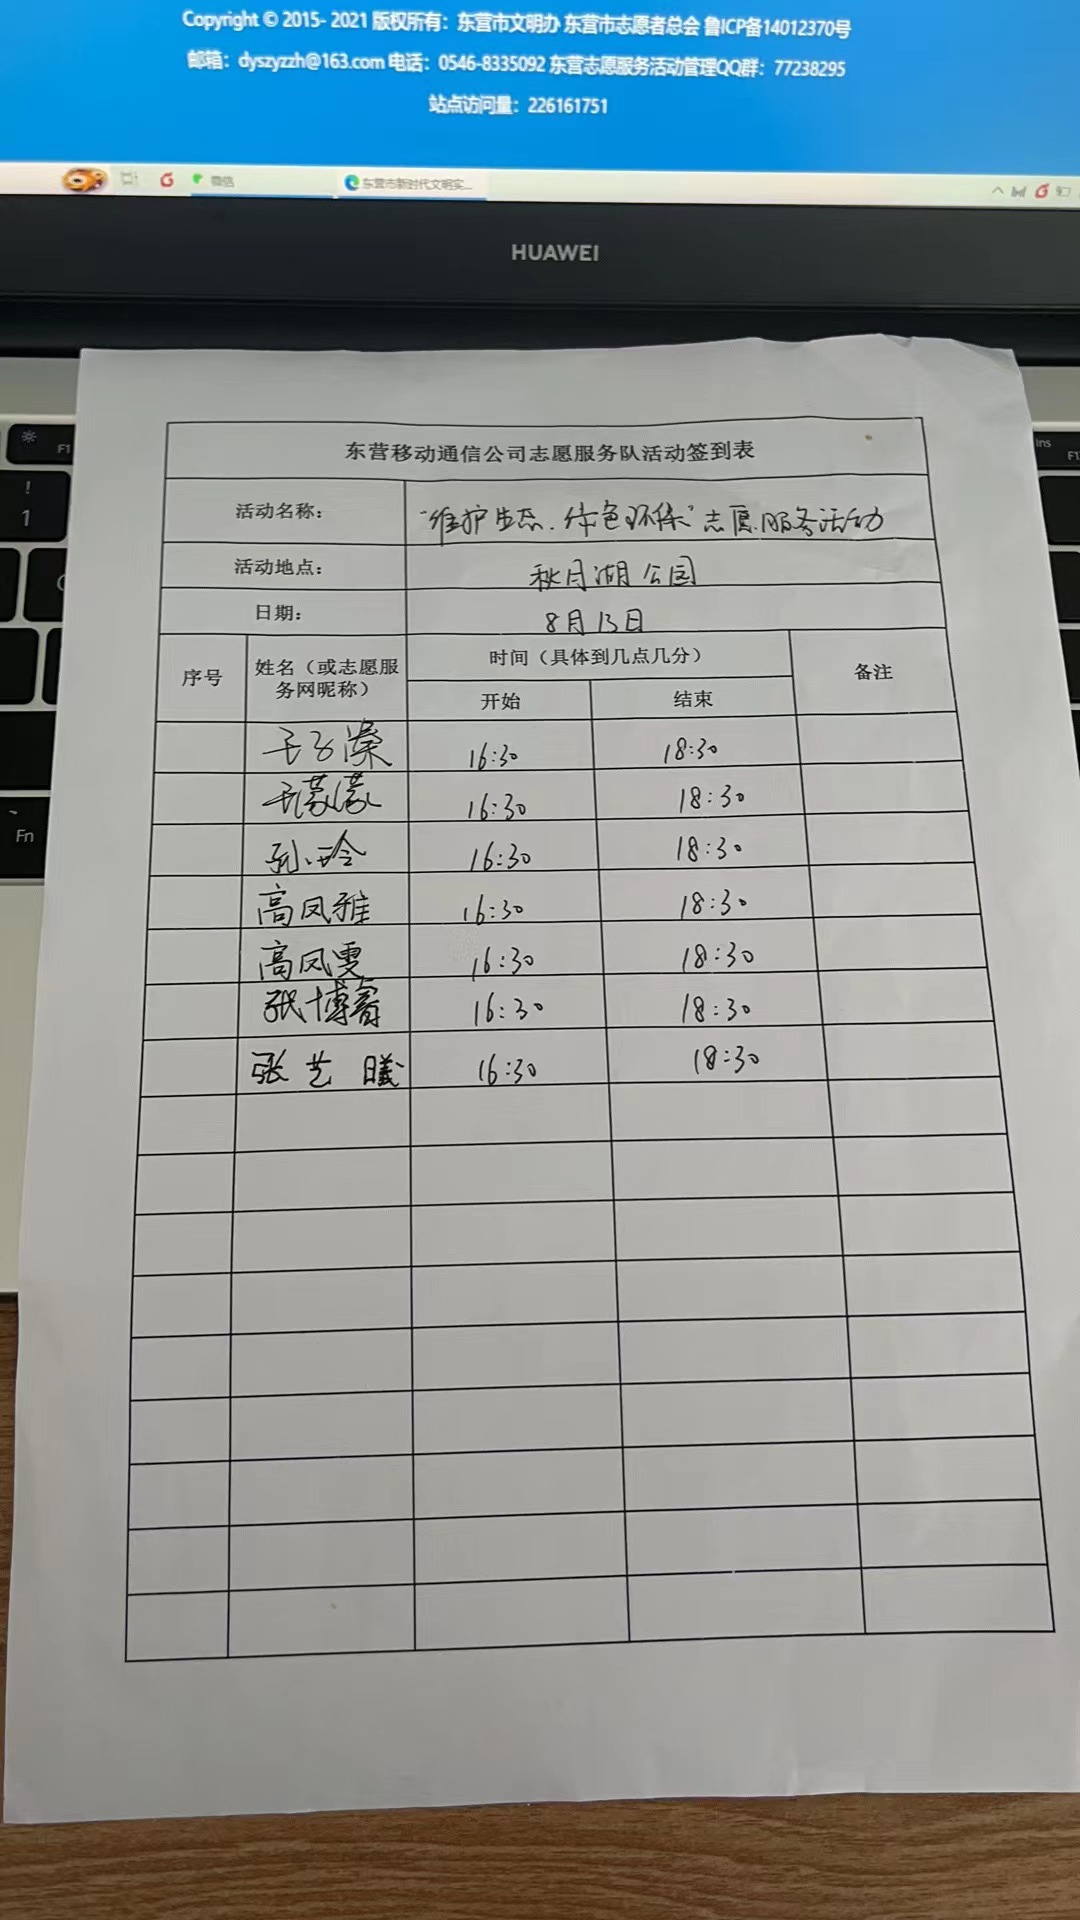 Copyright © 2015- 2021 版权所有：东营市文明办 东营市志愿者总会 鲁ICP备14012370号
邮箱：dyszyzzh@163.com 电话：0546-8335092 东营志愿服务活动管理QQ群：77238295
站点访问量：226161751
微信
东营市新时代文明实...
HUAWEI
F1
Ins
!
1
Fn
东营移动通信公司志愿服务队活动签到表
活动名称： "维护生态、绿色环保"志愿服务活动
活动地点： 秋月湖公园
日期： 8月13日
序号 姓名（或志愿服务网昵称） 时间（具体到几点几分） 备注
开始 结束
16:30 18:30
16:30 18:30
孙玲 16:30 18:30
高凤雅 16:30 18:30
高凤雯 16:30 18:30
张博睿 16:30 18:30
张艺曦 16:30 18:30